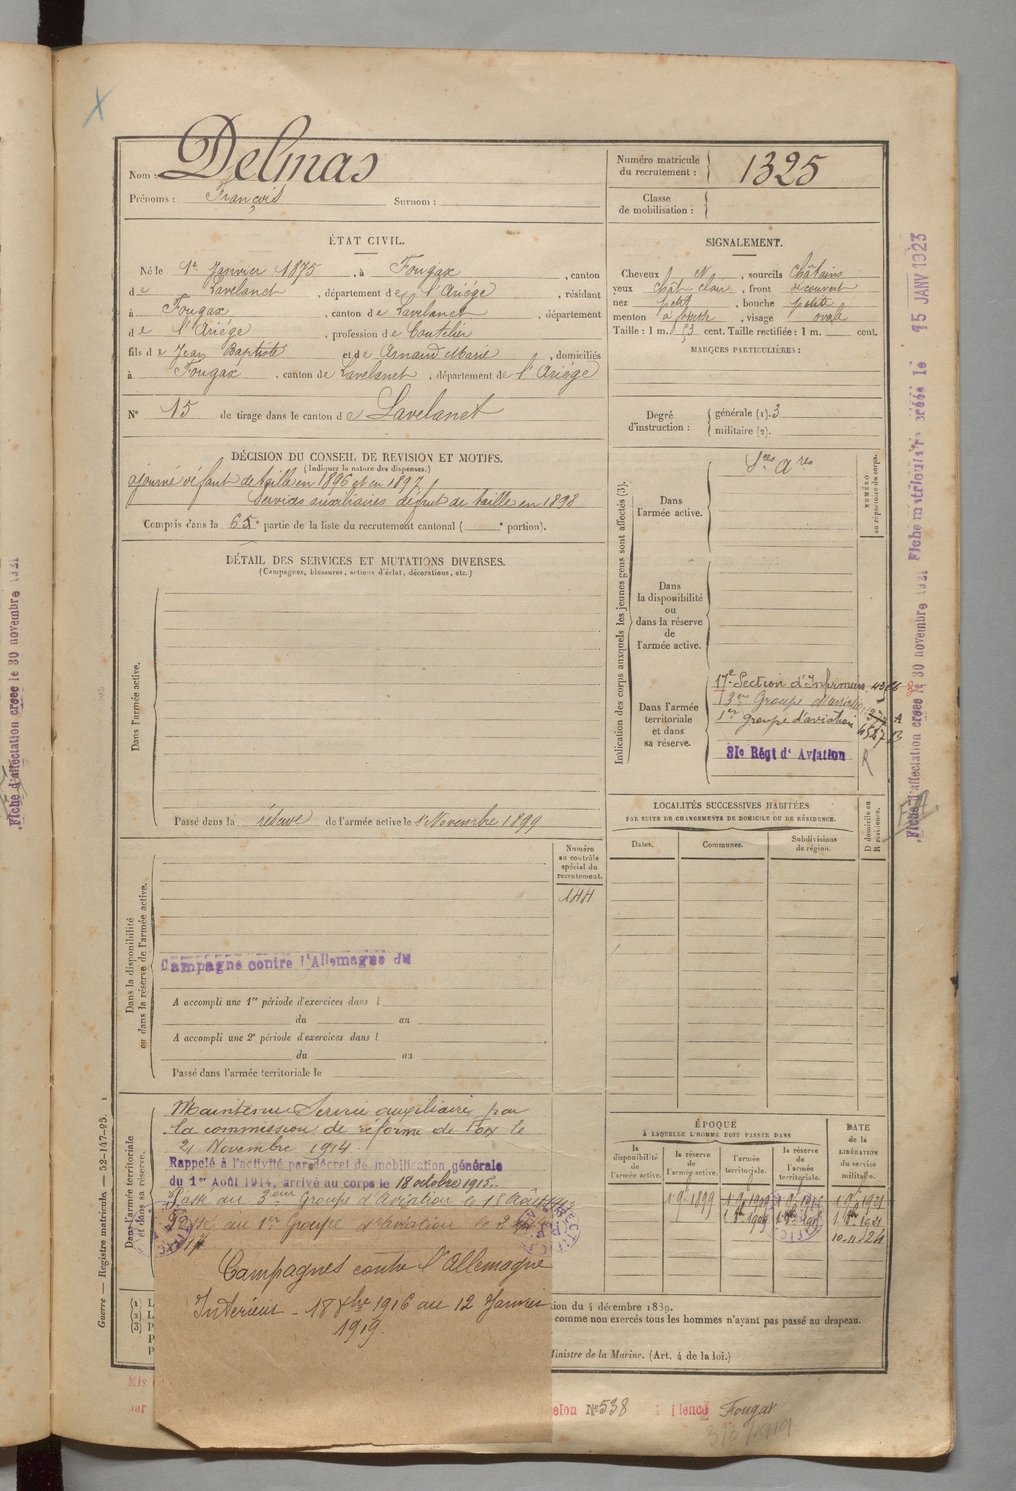 Nom : Delmas
Prénoms : François Surnom :
Numéro matricule du recrutement : 1325
Classe de mobilisation :
ÉTAT CIVIL.
Né le 1er Janvier 1875, à Fougax, canton
de Lavelanet, département de l'Ariège, résidant
à Fougax, canton de Lavelanet, département
de l'Ariège, profession de Coutelier
fils de Jean Baptiste et de Arnaud Marie, domiciliés
à Fougax, canton de Lavelanet, département de l'Ariège
N° 15 de tirage dans le canton de Lavelanet
SIGNALEMENT.
Cheveux N, sourcils Châtains
yeux chât clair, front découvert
nez petit, bouche petite
menton à fossette, visage ovale
Taille : 1 m. 53 cent. Taille rectifiée : 1 m. cent.
MARQUES PARTICULIÈRES :
Degré d'instruction : générale (1). 3
militaire (2).
DÉCISION DU CONSEIL DE REVISION ET MOTIFS.
(Indiquer la nature des dispenses.)
ajourné défaut de taille en 1896 et en 1897
Services auxiliaires défaut de taille en 1898
Compris dans la 6e partie de la liste du recrutement cantonal ( e portion).
DÉTAIL DES SERVICES ET MUTATIONS DIVERSES.
(Campagnes, blessures, actions d'éclat, décorations, etc.)
Dans l'armée active.
Passé dans la réserve de l'armée active le 1er Novembre 1899
Indication des corps auxquels les jeunes gens sont affectés (3).
NUMÉRO au répertoire du corps.
Dans l'armée active.
Sces Ares
Dans la disponibilité ou dans la réserve de l'armée active.
Dans l'armée territoriale et dans sa réserve.
17e Section d'Infirmiers
3eme Groupe d'aviation
1er groupe d'aviation
31e Régt d'Aviation
R
LOCALITÉS SUCCESSIVES HABITÉES
PAR SUITE DE CHANGEMENTS DE DOMICILE OU DE RÉSIDENCE.
Dates.
Communes.
Subdivisions de région.
D domicile ou R résidence.
Dans la disponibilité ou dans la réserve de l'armée active.
Numéro au contrôle spécial du recrutement.
144
Campagne contre l'Allemagne du
A accompli une 1re période d'exercices dans l
du au
A accompli une 2e période d'exercices dans l
du au
Passé dans l'armée territoriale le
Dans l'armée territoriale et dans sa réserve.
Maintenu Service auxiliaire par
la commission de réforme de Foix le
21 Novembre 1914
Rappelé à l'activité par décret de mobilisation générale
du 1er Août 1914, arrivé au corps le 18 octobre 1915.
Passé au 3eme Groupe d'Aviation le 15 Août
Passé au 1er Groupe d'Aviation le 2
17
Campagnes contre l'Allemagne
Intérieur - 18 Xbre 1916 au 12 Janvier
1919.
ÉPOQUE
À LAQUELLE L'HOMME DOIT PASSER DANS
la disponibilité de l'armée active.
la réserve de l'armée active.
l'armée territoriale.
la réserve de l'armée territoriale.
DATE de la LIBÉRATION du service militaire.
10-11-24
tion du 4 décembre 1839.
comme non exercés tous les hommes n'ayant pas passé au drapeau.
Ministre de la Marine. (Art. 4 de la loi.)
Mis
par
elon N° 538
Fougax
Guerre — Registre matricule. — 52-147-95.
Fiche d'affectation créée le 30 novembre 1921
Fiche d'affectation créée le 30 novembre 1921
Fiche matriculaire créée le 15 JANV 1923